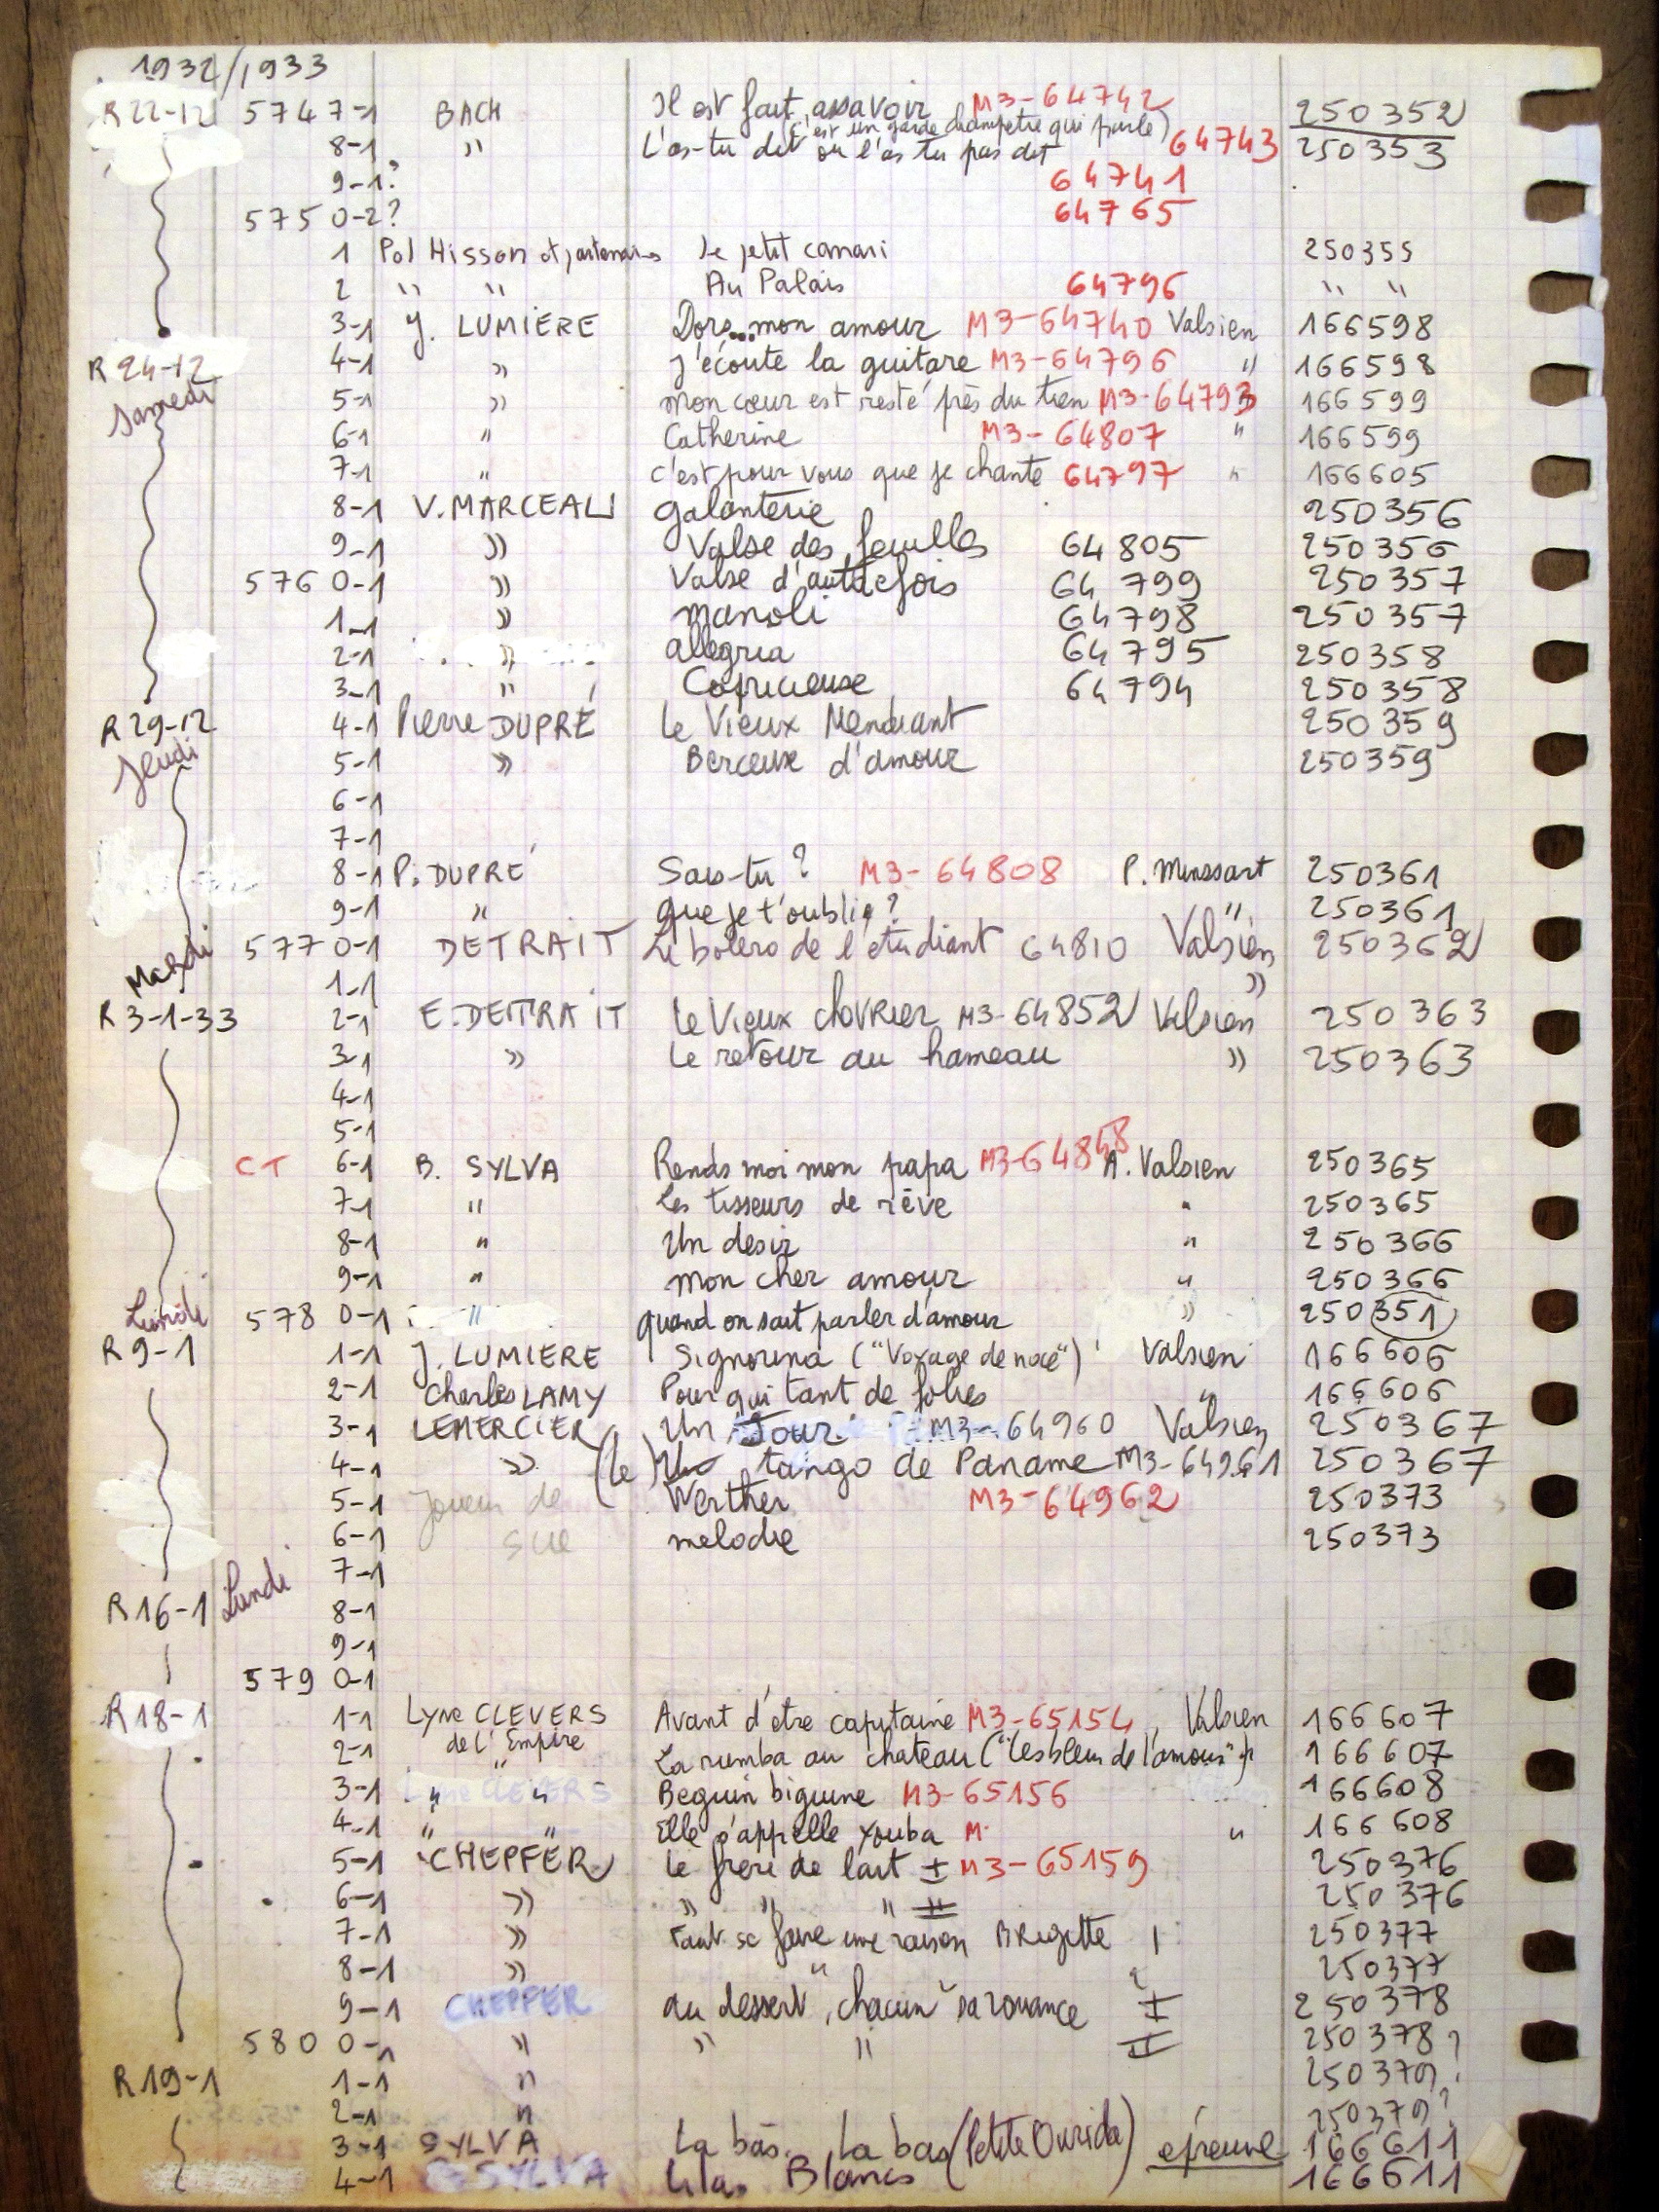 1932/1933
R 22-12 5747-1 BACH Il est fait assavoir M3-64742 250352
(c'est un garde champetre qui parle)
8-1 " L'as-tu dit ou l'as tu pas dit 64743 250353
9-1? 64741
5750-2? 64765
1 Pol Hisson et partenaires Le petit canari 250355
2 " " Au Palais 64796 " "
3-1 J. LUMIERE Dors...mon amour M3-64740 Valsien 166598
R 24-12 4-1 " J'écoute la guitare M3-64796 " 166598
Samedi 5-1 " mon cœur est resté près du tien M3-64793 " 166599
6-1 " Catherine M3-64807 " 166599
7-1 " c'est pour vous que je chante 64797 " 166605
8-1 V. MARCEAU galanterie 250356
9-1 " Valse des feuilles 64805 250356
5760-1 " Valse d'autrefois 64799 250357
1-1 " manoli 64798 250357
2-1 " allegria 64795 250358
3-1 " Capricieuse 64794 250358
R 29-12 4-1 Pierre DUPRÉ Le Vieux Mendiant 250359
Jeudi 5-1 " Berceuse d'amour 250359
6-1
7-1
8-1 P. DUPRÉ Sais-tu ? M3-64808 P. Minssart 250361
9-1 " que je t'oublie ? " 250361
Mardi 5770-1 DETRAIT Le bolero de l'étudiant 64810 Valsien 250362
1-1 "
R 3-1-33 2-1 E. DETRAIT Le Vieux chevrier M3-64852 Valsien 250363
3-1 " Le retour au hameau " 250363
4-1
5-1
CT 6-1 B. SYLVA Rends moi mon papa M3-64848 A. Valsien 250365
7-1 " Les tisseurs de rêve " 250365
8-1 " Un desir " 250366
9-1 " mon cher amour " 250366
Lundi 5780-1 " quand on sait parler d'amour " 250351
R 9-1 1-1 J. LUMIERE Signorina ("Voyage de noce") Valsien 166606
2-1 Charles LAMY Pour qui tant de folies " 166606
3-1 LEMERCIER Un Jour M3-64960 Valsien 250367
4-1 " (le) tango de Paname M3-64961 250367
5-1 Joueur de Werther M3-64962 250373
6-1 scie melodie 250373
7-1
R 16-1 Lundi 8-1
9-1
5790-1
R 18-1 1-1 Lyne CLEVERS Avant d'être capitaine M3-65154 Valsien 166607
de l'Empire
2-1 " La rumba au chateau ("Les bleus de l'amour") " 166607
3-1 " " Beguin biguine M3-65156 166608
4-1 " " Elle s'appelle Youba M. " 166608
5-1 CHEPFER Le frere de lait I M3-65159 250376
6-1 " " " " II 250376
7-1 " Faut se faire une raison Brigitte 1 250377
8-1 " " 2 250377
9-1 CHEPFER au dessert, chacun sa romance I 250378
5800-1 " " " II 250378?
R 19-1 1-1 " 250379?
2-1 " 250379?
3-1 SYLVA La bas.. La bas (Petite Ourida) epreuve 166611
4-1 B SYLVA Lilas Blancs 166611